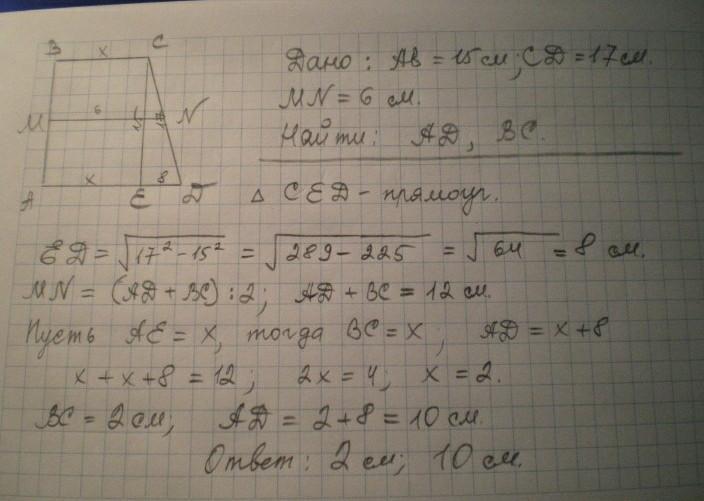 B x C
Дано: AB = 15 см; CD = 17 см.
M 6 N
MN = 6 см.
Найти: AD, BC.
A x E 8 D
△ CED - прямоуг.
ED = √17² - 15² = √289 - 225 = √64 = 8 см.
MN = (AD + BC) : 2; AD + BC = 12 см.
Пусть AE = x, тогда BC = x; AD = x + 8
x + x + 8 = 12; 2x = 4; x = 2.
BC = 2 см; AD = 2 + 8 = 10 см.
Ответ: 2 см; 10 см.